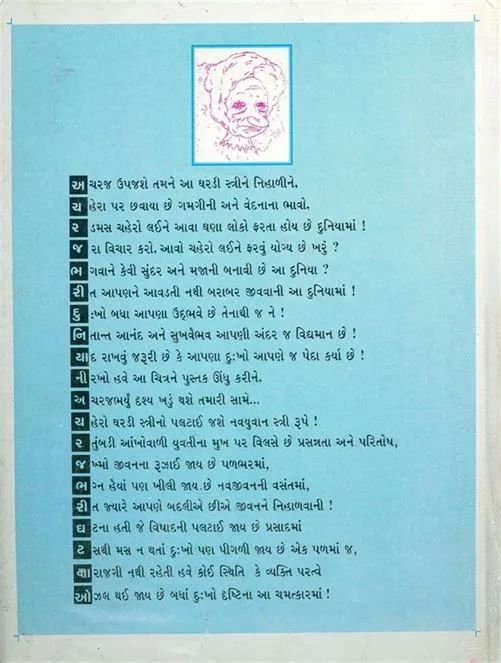 અચરજ ઉપજશે તમને આ ઘરડી સ્ત્રીને નિહાળીને,
ચહેરા પર છવાયા છે ગમગીની અને વેદનાના ભાવો,
રડમસ ચહેરો લઈને આવા ઘણા લોકો ફરતા હોય છે દુનિયામાં !
જરા વિચાર કરો, આવો ચહેરો લઈને ફરવું યોગ્ય છે ખરું ?
ભગવાને કેવી સુંદર અને મજાની બનાવી છે આ દુનિયા ?
રીત આપણને આવડતી નથી બરાબર જીવવાની આ દુનિયામાં !
દુઃખો બધા આપણા ઉદ્ભવે છે તેનાથી જ ને !
નિતાન્ત આનંદ અને સુખવૈભવ આપણી અંદર જ વિદ્યમાન છે !
યાદ રાખવું જરૂરી છે કે આપણા દુઃખો આપણે જ પેદા કર્યા છે !
નીરખો હવે આ ચિત્રને પુસ્તક ઊંધુ કરીને,
અચરજભર્યું દૃશ્ય ખડું થશે તમારી સામે...
ચહેરો ઘરડી સ્ત્રીનો પલટાઈ જશે નવયુવાન સ્ત્રી રૂપે !
રતુંબડી આંખોવાળી યુવતીના મુખ પર વિલસે છે પ્રસન્નતા અને પરિતોષ,
જખ્મો જીવનના રૂઝાઈ જાય છે પળભરમાં,
ભગ્ન હૈયાં પણ ખીલી જાય છે નવજીવનની વસંતમાં,
રીત જ્યારે આપણે બદલીએ છીએ જીવનને નિહાળવાની !
ઘટના હતી જે વિષાદની પલટાઈ જાય છે પ્રસાદમાં
ટસથી મસ ન થતાં દુઃખો પણ પીગળી જાય છે એક પળમાં જ,
નારાજગી નથી રહેતી હવે કોઈ સ્થિતિ કે વ્યક્તિ પરત્વે
ઓઝલ થઈ જાય છે બધાં દુઃખો દૃષ્ટિના આ ચમત્કારમાં !